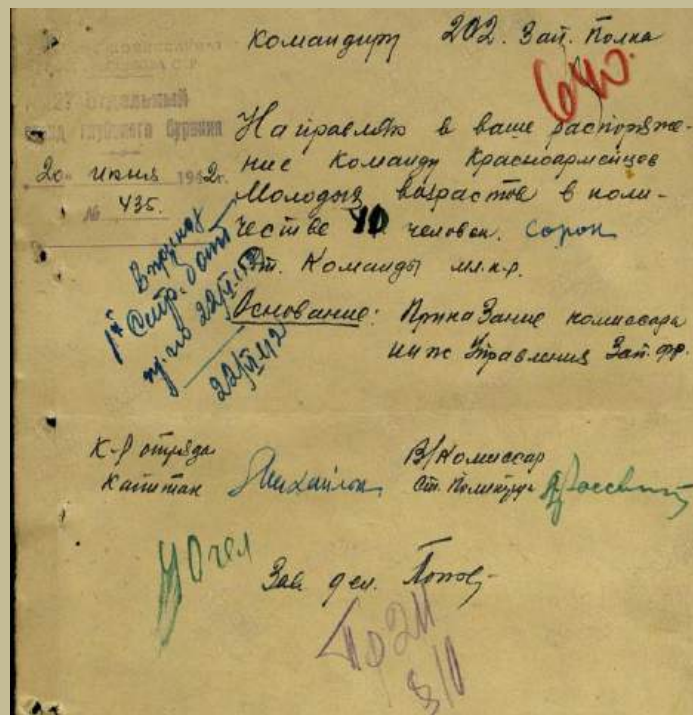 Командиру 202. Зап. Полка
640.
27 Отдельный
отряд глубокого бурения
20 июня 1942г.
№ 435.
Направляю в ваше распоряже-
ние команду Красноармейцев
Молодых возрастов в коли-
честве 40 человек. сорок
Ст. Команды мл.к-р.
Основание: Приказание комиссара
инж Управления Зап. фр.
В приказ
1й Стр. бат
22/VI 42
К-р отряда
Капитан Михайлов
В/Комиссар
Ст. Политрук
40 чел
Зав. дел. Попов